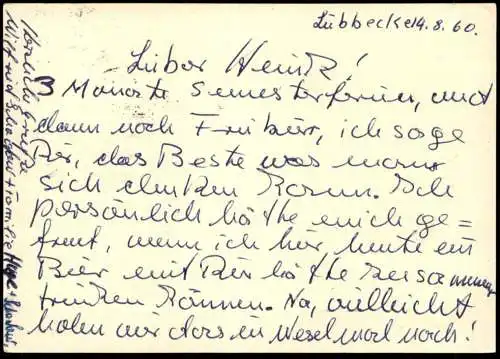 Lübbecke 14.8.60.
Lieber Heinz!
3 Monate Semesterferien, und
dann noch Freibier, ich sage
Dir, das Beste was man
sich denken kann. Ich
persönlich hätte mich ge=
freut, wenn ich hier heute ein
Bier mit Dir hätte zusammen
trinken können. Na, vielleicht
holen wir das in Wesel mal nach!
Herzliche Grüße
+ Familie